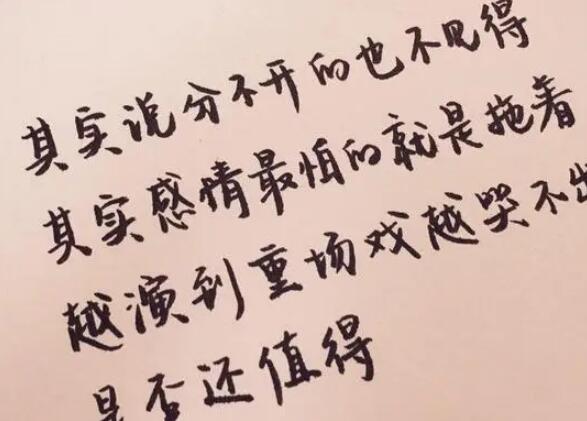 其实说分不开的也不见得
其实感情最怕的就是拖着
越演到重场戏越哭不出
是否还值得